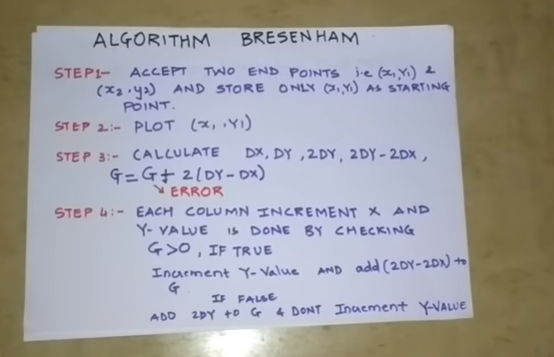 ALGORITHM BRESENHAM
STEP1- ACCEPT TWO END POINTS i.e (x1,Y1) &
(x2,y2) AND STORE ONLY (x1,Y1) AS STARTING
POINT.
STEP 2:- PLOT (x1,,Y1)
STEP 3:- CALCULATE DX, DY, 2DY, 2DY-2DX,
G=G+2(DY-DX)
↘ ERROR
STEP 4:- EACH COLUMN INCREMENT X AND
Y-VALUE IS DONE BY CHECKING
G>0, IF TRUE
Increment Y-Value AND add(2DY-2DX) to
G
IF FALSE
ADD 2DY to G & DONT Increment Y-VALUE